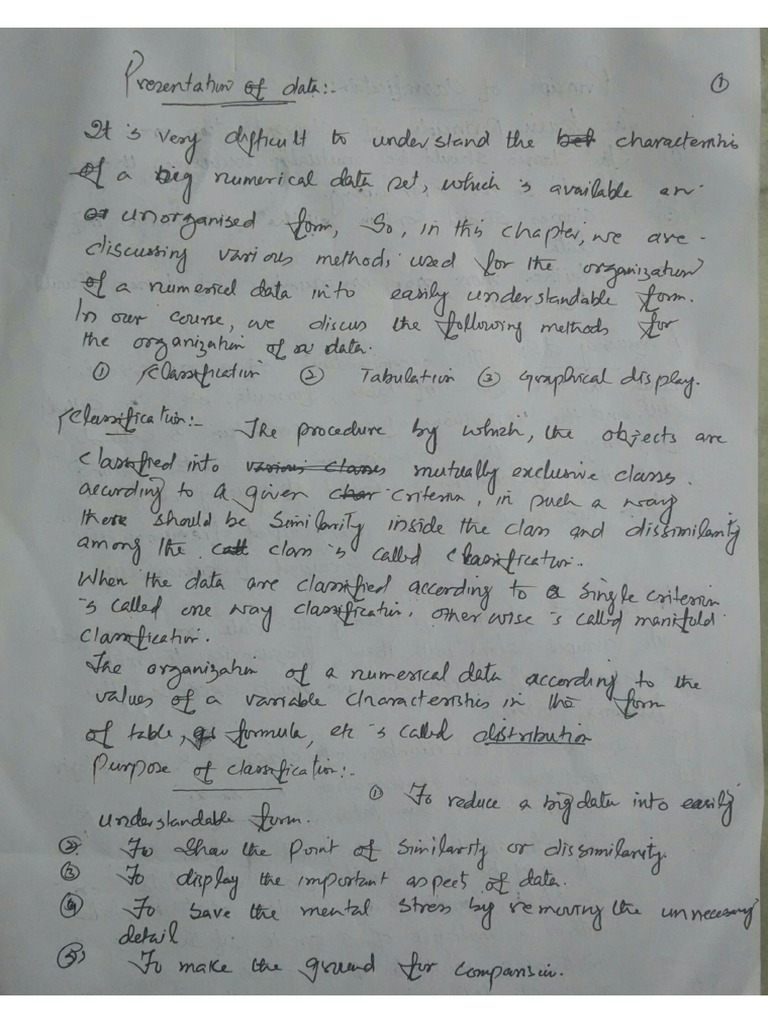 Presentation of data:-
①
It is very difficult to understand the characteristics
of a big numerical data set, which is available an
unorganised form, So, in this chapter, we are -
discussing various methods used for the organization
of a numerical data into easily understandable form.
In our course, we discus the following methods for
the organization of data.
① Classification ② Tabulation ③ Graphical display.
Classification:- The procedure by which, the objects are
classified into various classes mutually exclusive classes.
according to a given criterion, in such a way
there should be similarity inside the class and dissimilarity
among the class is called classification.
When the data are classified according to a single criterion
is called one way classification, otherwise is called manifold
classification.
The organization of a numerical data according to the
values of a variable characteristics in the form
of table, formula, etc is called distribution
Purpose of classification:-
① To reduce a big data into easily
understandable form.
② To show the point of similarity or dissimilarity.
③ To display the important aspect of data.
④ To save the mental stress by removing the unnecessary
detail
⑤ To make the ground for comparison.